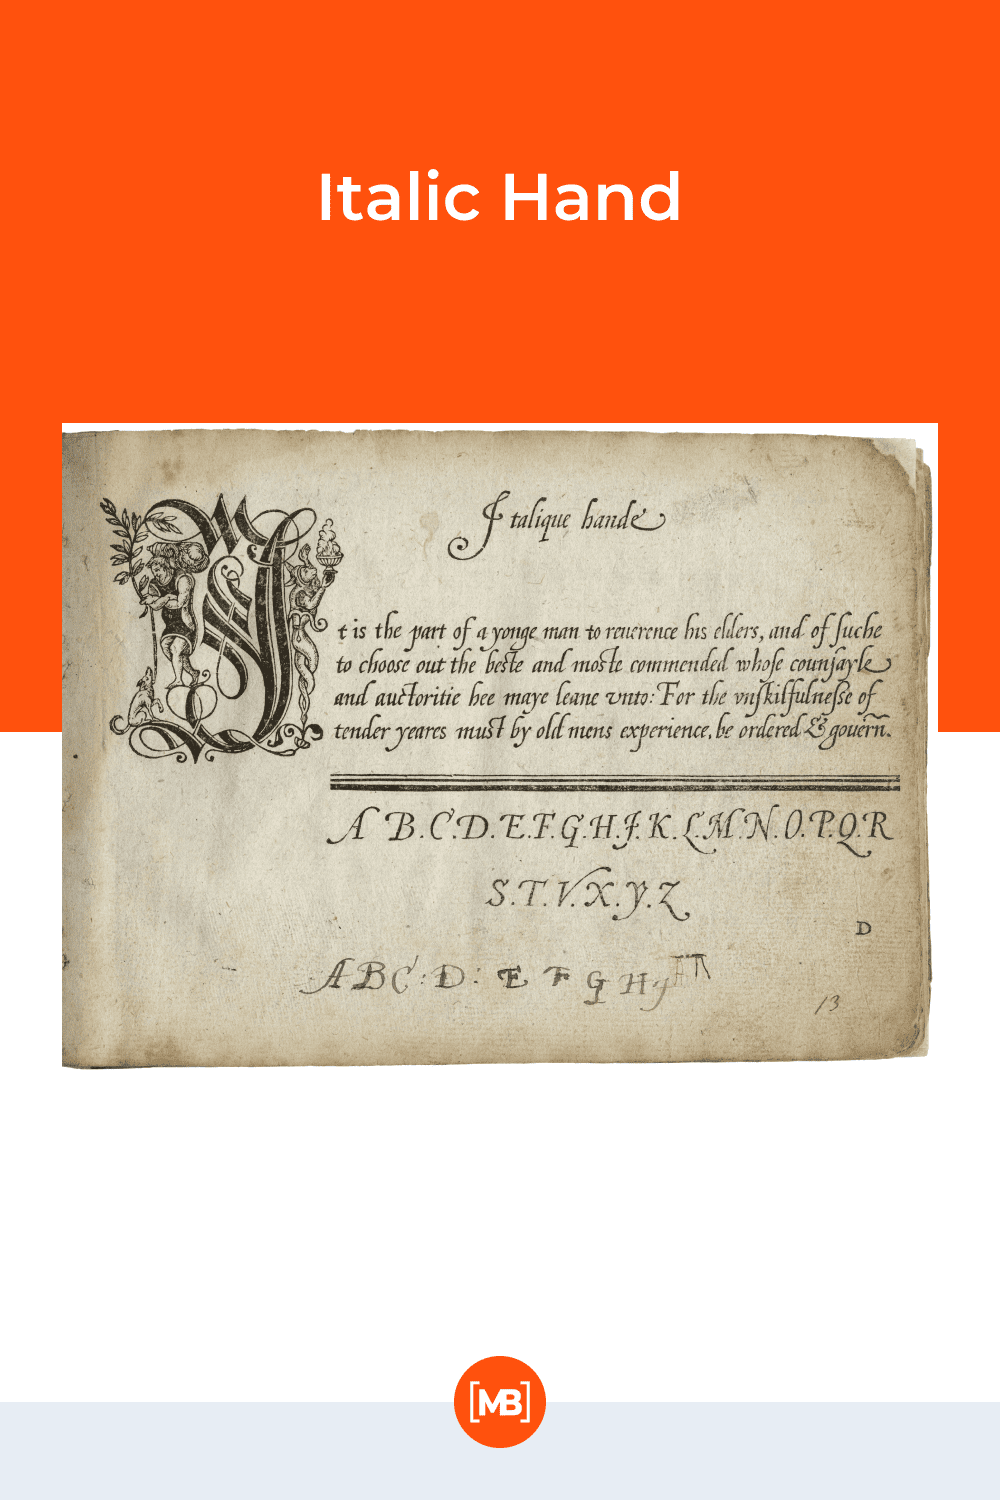 Italic Hand
Italique hande
It is the part of a yonge man to reuerence his elders, and of suche
to choose out the beste and moste commended whose counsayle
and auctoritie hee maye leane vnto: For the vnskilfulnesse of
tender yeares must by old mens experience, be ordered & gouern̄.
A B.C.D.E.F.G.H.J.K.L.M.N.O.P.Q.R
S.T.V.X.y.Z
D
A B C : D : E F G H
13
[MB]